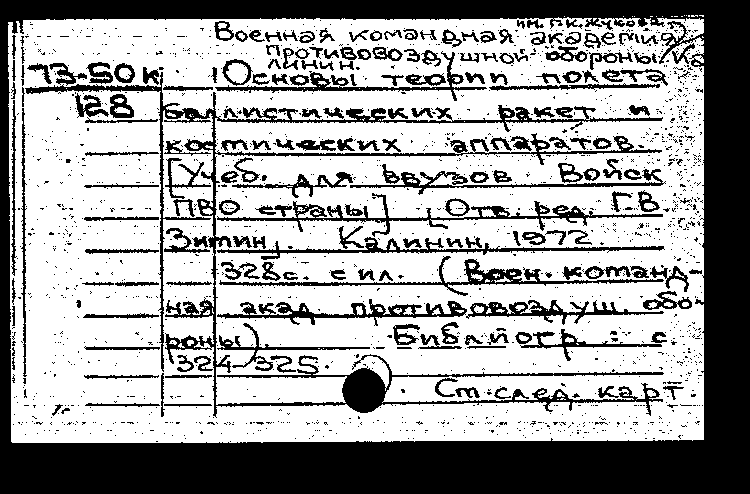 им. Г.К. Жукова.
Военная командная академия
противовоздушной обороны Ка
линин.
73-50к Основы теории полета
128 баллистических ракет и
космических аппаратов.
[Учеб. для ввузов Войск
ПВО страны] [Отв. ред. Г.В
Зимин]. Калинин, 1972.
328с. с ил. (Воен. команд-
ная акад. противовоздуш. обо-
роны). Библиогр.: с.
324-325.
См. след. карт.